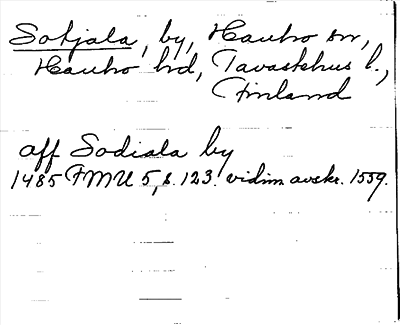 Sotjala, by, Hauho sn,
Hauho hd, Tavastehus l.,
Finland
aff Sodiala by
1485 FMU 5, s. 123. vidim. avskr. 1559.